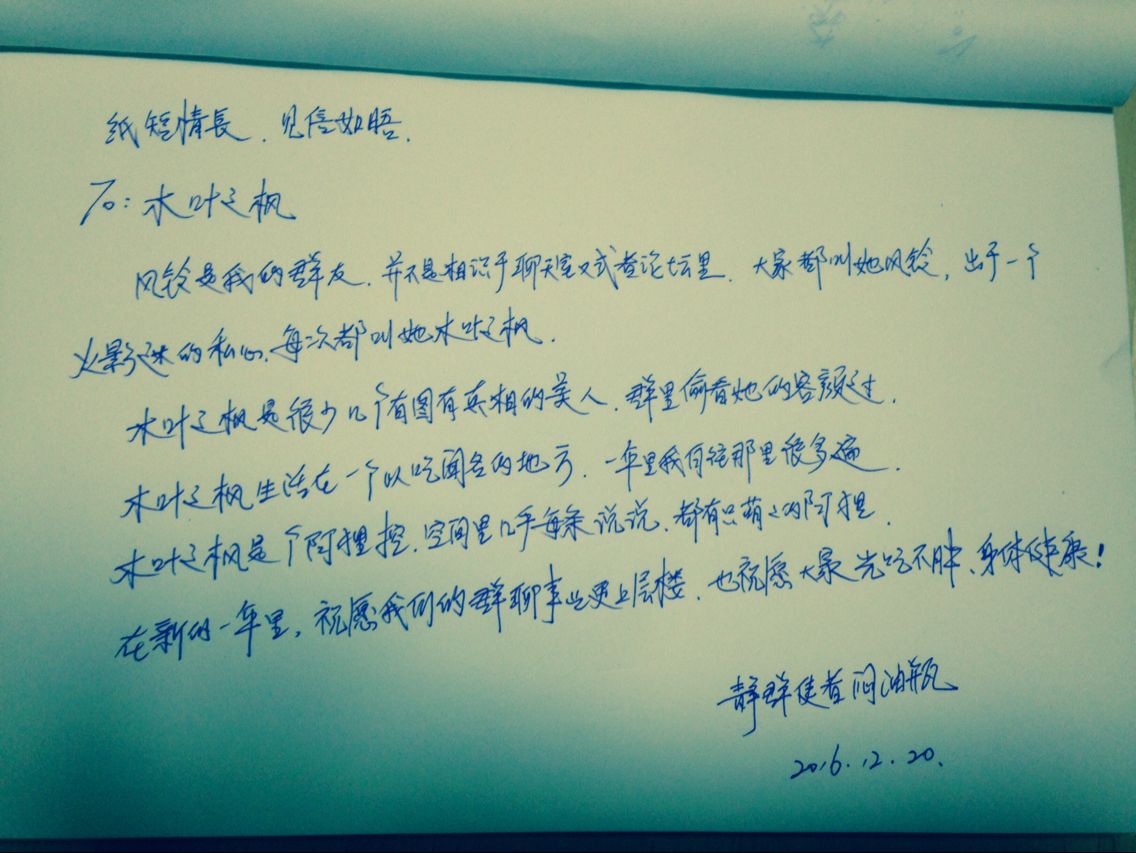 纸短情長，见信如晤。
To：木叶之枫
风铃是我的群友，并不是相识于聊天室又或者论坛里，大家都叫她风铃，出于一个
火影迷的私心，每次都叫她木叶之枫。
木叶之枫是很少几个有图有真相的美人，群里偷看她的容颜过。
木叶之枫生活在一个以吃闻名的地方，一年里我向往那里很多遍。
木叶之枫是个阿狸控，空间里几乎每条说说，都有只萌萌的阿狸。
在新的一年里，祝愿我们的群聊事业更上层楼，也祝愿大家光吃不胖、身体健康！
静群使者闷油瓶
2016.12.20.